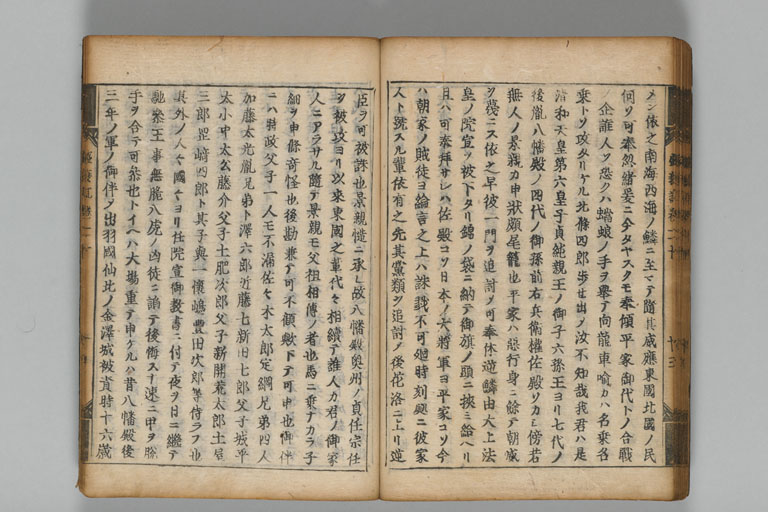 メン依之南海西海ノ鱗ニ至マテ随其威應東國北國ノ民
何ソ可奉忽緒爰ニ今タヤスクモ奉傾平家御代トノ合戰
企誰人ソ恐クハ蟷螂ノ手ヲ擧テ向龍車喩カハ名乗名
乗トソ攻タリケル北條四郎歩セ出テ汝不知哉我君ハ是
清和天皇第六皇子貞純親王ノ御子六孫王ヨリ七代ノ
後胤八幡殿ノ四代ノ御孫前右兵衛權佐殿ソカシ傍若
無人ノ景親カ申状頗尾籠也平家ハ悪行身ニ餘テ朝威
ヲ蔑ニス依之早彼一門ヲ追討メ可奉休逆鱗由太上法
皇ノ院宣ヲ被下タリ錦ノ袋ニ納テ御旗ノ頭ニ挟ミ給ヘリ
且ハ可奉拝サレハ佐殿コソ日本ノ大將軍ヨ平家コソ今
ハ朝家ノ賊徒ヨ綸言之上ハ誅戮不可廻時刻爰ニ彼家
人ト號スル輩依有之先其黨類ヲ追討メ後花洛ニ上リ逆
臣ヲ可被誅也景親慥ニ承レ故八幡殿奥州ノ貞任宗任
ヲ被攻ヨリ以來東國之輩代々相續テ誰人カ君ノ御家
人ニアラサル随テ景親モ父祖相傳ノ者也馬ニ乗ナカラ子
細ヲ申條奇怪也後勘兼テ可不顧歟下テ可申也御伴
ニハ時政父子一人モ不漏佐々木太郎定綱兄弟四人
加藤太光胤兄弟ト澤六郎近藤七新田七郎父子城平
太小中太公藤介父子土肥次郎父子新開荒太郎土屋
三郎罡崎四郎ト其子與一懐嶋豊田次郎等侍ラフ也
其外ノ人々國々ヨリ任院宣御教書ニ付テ夜ヲ日ニ繼テ
馳參王事無脆八虎ノ凶徒ニ諂テ後悔スナ速ニ甲ヲ脱
手ヲ合テ可參也トイヘハ大場重テ申ケルハ昔八幡殿後
三年ノ軍ノ御伴メ出羽國仙北ノ金澤城被責時十六歳